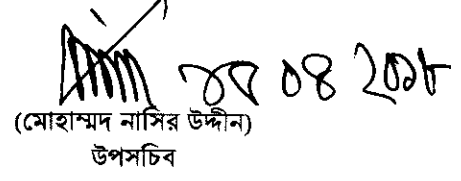 ০৪ ২০১৮
(মোহাম্মদ নাসির উদ্দীন)
উপসচিব